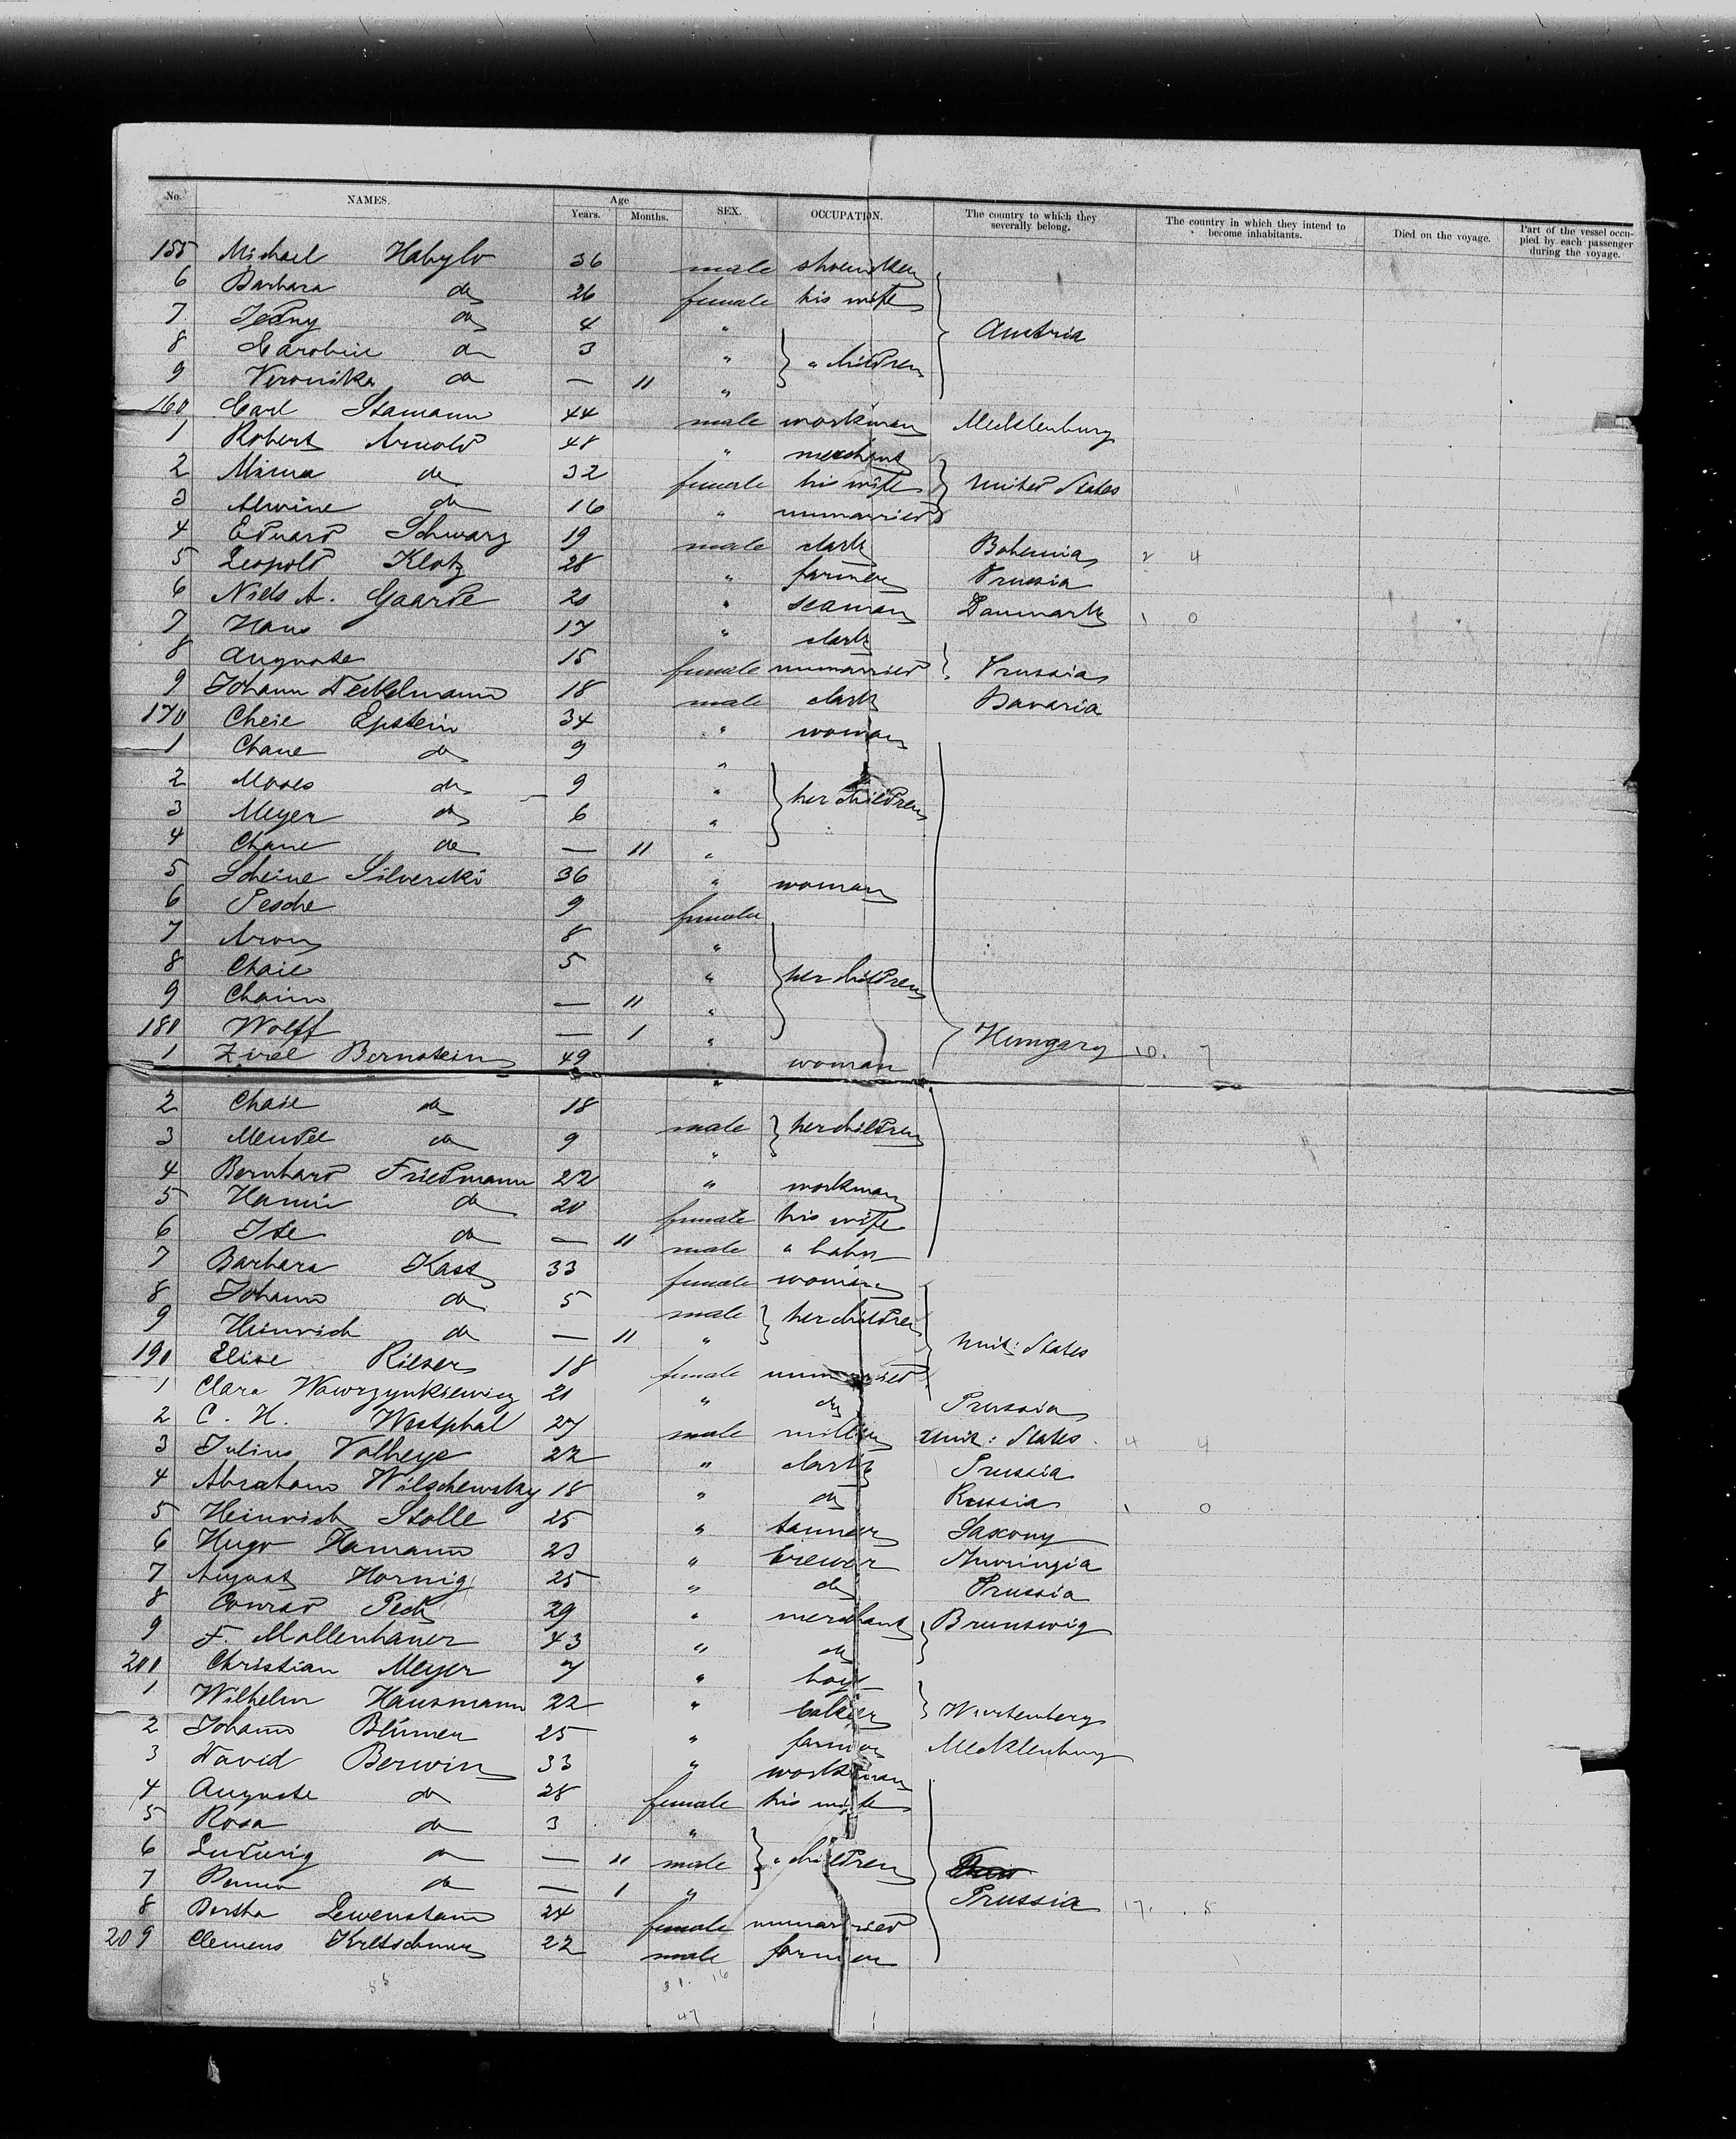 No. NAMES. Age Years. Months. SEX. OCCUPATION. The country to which they severally belong. The country in which they intend to become inhabitants. Died on the voyage. Part of the vessel occupied by each passenger during the voyage.
155 Michael Habylo 36 male shoemaker
6 Barbara do 26 female his wife
7 Jenny do 4 " Austria
8 Caroline do 3 " " children
9 Veronika do — 11 "
160 Carl Stamann 44 male workman Mecklenburg
1 Robert Arnold 48 " merchant
2 Minna do 32 female his wife United States
3 Alwine do 16 " unmarried
4 Eduard Schwarz 19 male clark Bohemia 2 4
5 Leopold Klotz 28 " farmer Prussia
6 Niels A. Gaarde 20 " seaman Danmark 1 0
7 Hans 17 " clark
8 Auguste 15 female unmarried Prussia
9 Johann Teckelmann 18 male clark Bavaria
170 Cheie Epstein 34 " woman
1 Chane do 9 "
2 Moses do 9 " her children
3 Meyer do 6 "
4 Chane do — 11 "
5 Scheine Silverski 36 " woman
6 Pesche 9 female
7 Aron 8 "
8 Chaie 5 " her children
9 Chaim — 11 "
180 Wolff — 1 " Hungary 10. 7
1 Zirel Bernstein 49 " woman
2 Chaie do 18 male her children
3 Mendel do 9 "
4 Bernhard Friedmann 22 " workman
5 Hanni do 20 female his wife
6 Ide do — 11 male " baby
7 Barbara Kast 33 female woman
8 Johann do 5 male her children
9 Heinrich do — 11 " Unit: States
190 Elise Rieser 18 female unmarried
1 Clara Wawrzynkiewicz 21 " do Prussia
2 C. H. Westphal 27 male miller Unit: States. 4 4
3 Julius Volheye 22 " clark Prussia
4 Abraham Wilschewsky 18 " do Russia 1 0
5 Heinrich Stolle 25 " tanner Saxony
6 Hugo Hamann 23 " brewer Thuringia
7 August Hornig 25 " do Prussia
8 Conrad Peck 29 " merchant Brunswig
9 F. Mollenhauer 43 " do
200 Christian Meyer 7 " boy
1 Wilhelm Hausmann 22 " baker Wurtenberg
2 Johann Blümer 25 " farmer Mecklenburg
3 David Berwin 33 " workman
4 Auguste do 28 female his wife
5 Rosa do 3 "
6 Ludwig do — 11 male " children
7 Benno do — 1 " Prussia 17. 5
8 Bertha Lewenstam 24 female unmarried
209 Clemens Kretschmer 22 male farmer
55 31. 16
47